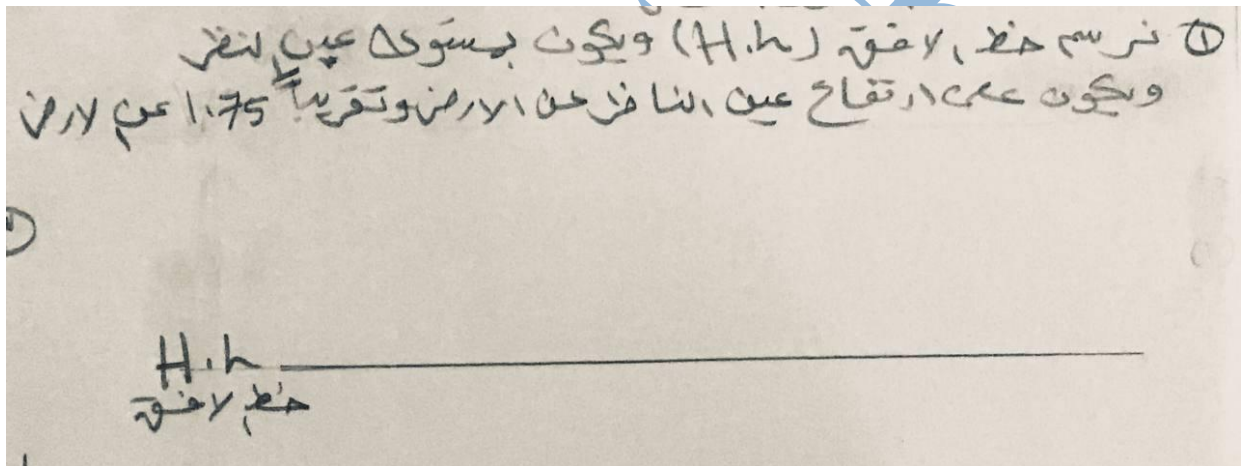 ① نرسم خط الافق (H.h) ويكون بمستوى عين لنضر
ويكون على ارتفاع عين الناضر عن الارض وتقريباً 1.75 عن لارض
H.h
خط لافق